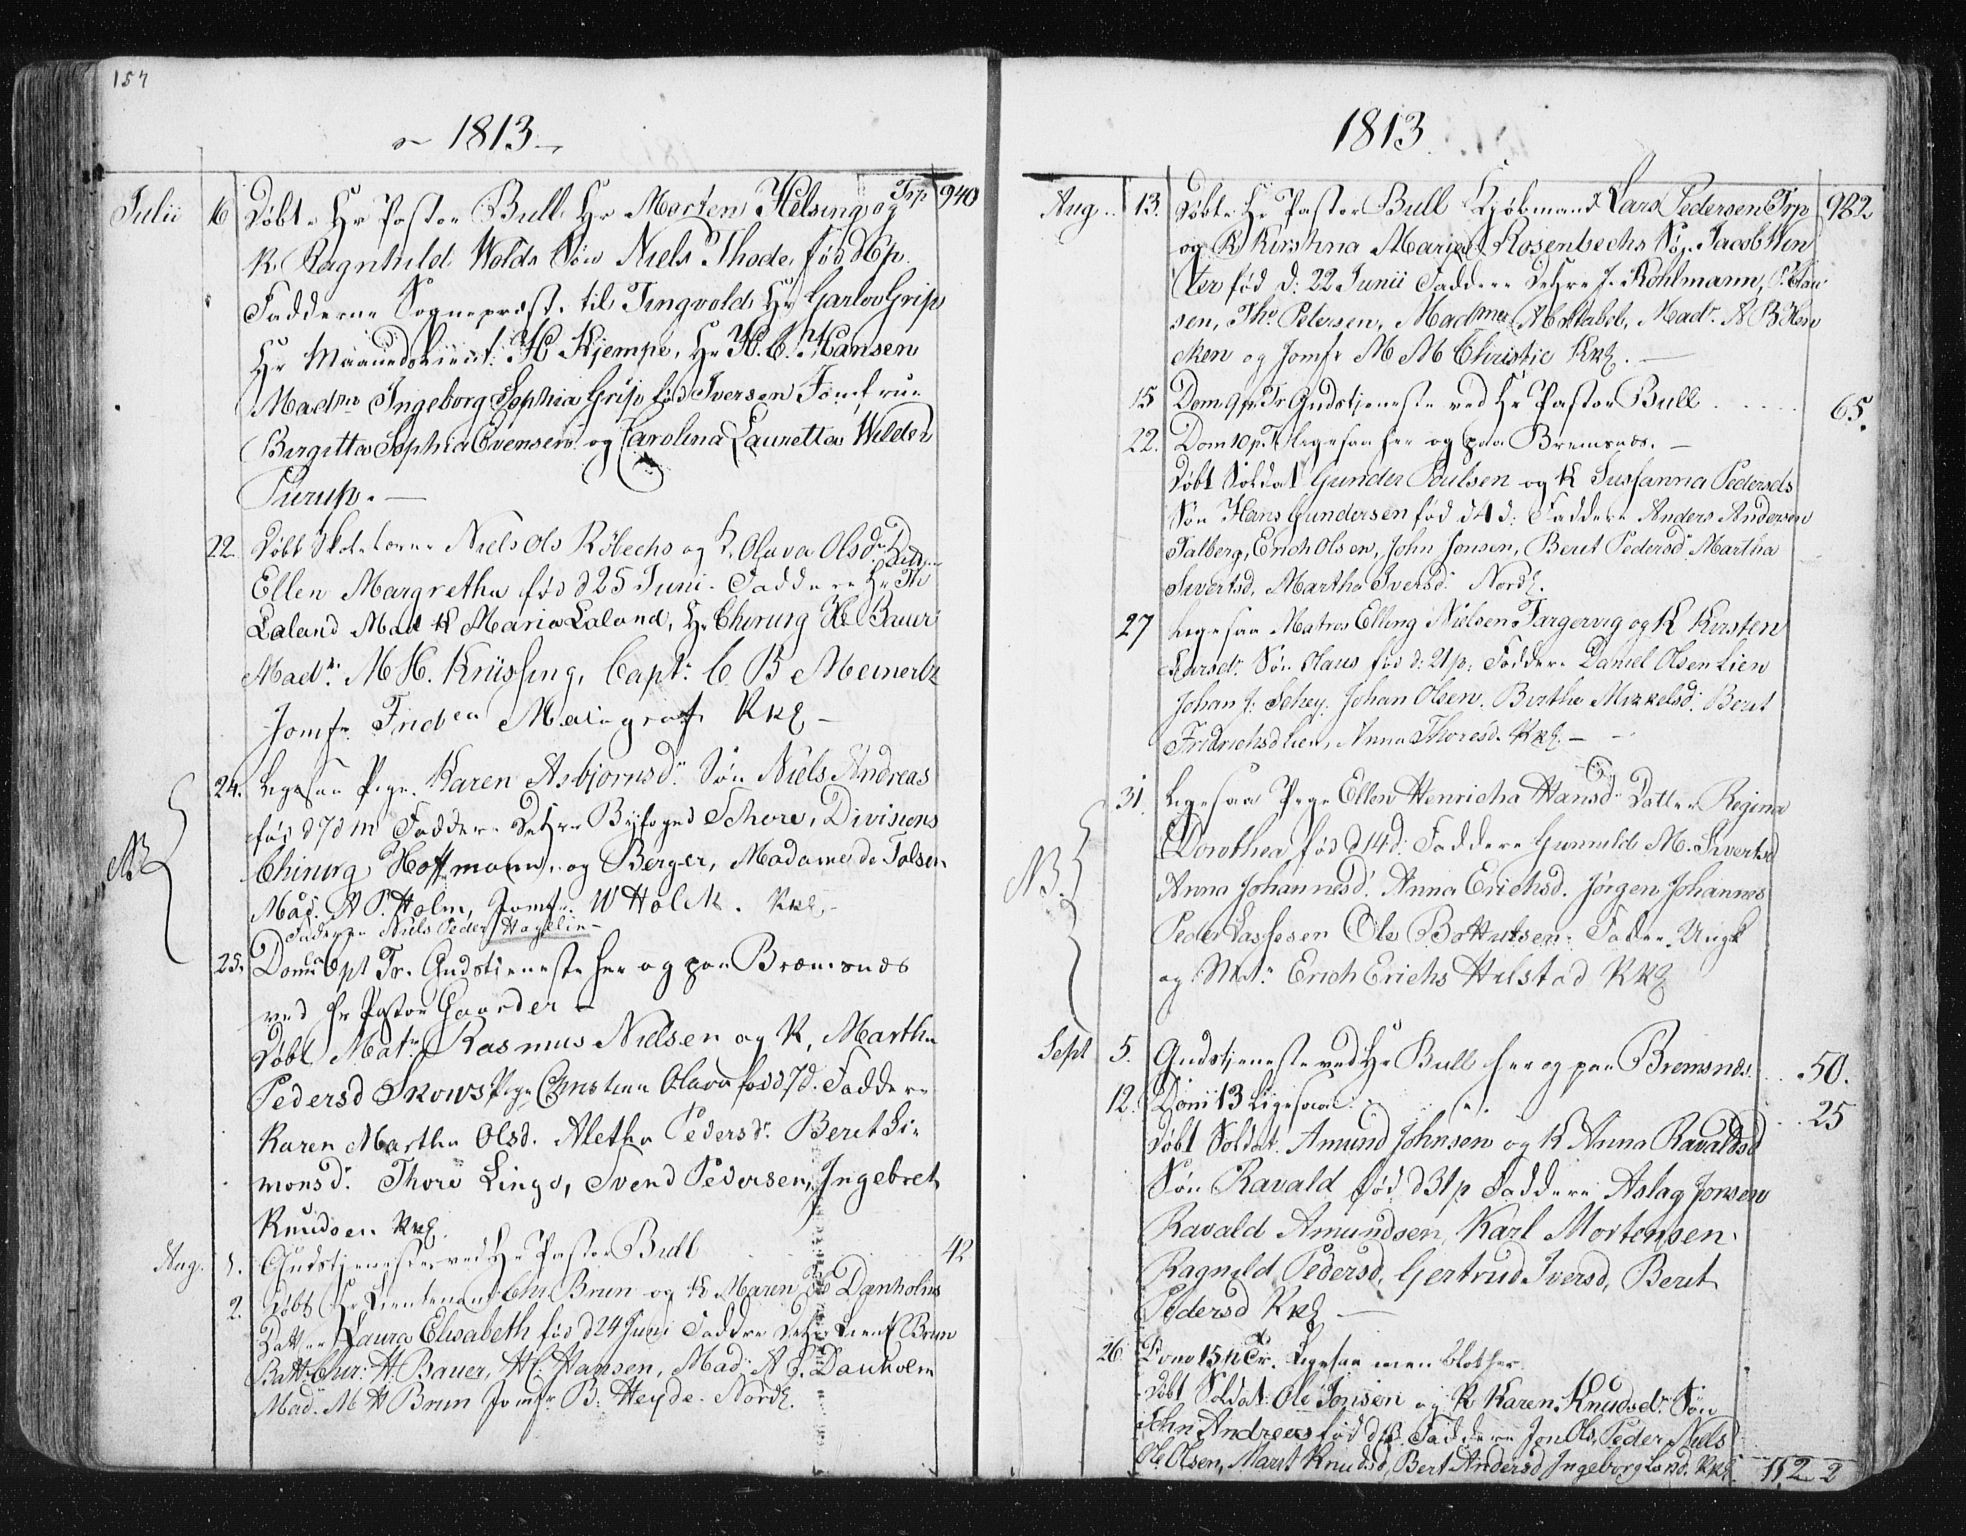 157
1813
Julii 16 Døbt Hr Pastor Bull Hr Morten Helsing og Trp 940
K. Ragnhild Wolds Søn Niels Thode, fød
Fadderne Sognepræst til Tingvold Hr Garlov Grip
Hr H Kjempe, Hr H. C. Hansen
Madme Ingeborg Sophia Grip fød Iversen Jomfrue
Birgitta Sophia Evensen og Carolina Lauretta Wilder
Purup.
22. Døbt Niels Ols Röbechs og K. Olava Olsdr Datter
Ellen Margretha fød d 25 Juni Faddere Hr Th
Laland Mad K Maria Laland, Hr Chirurg H. Bauer
Madm M H. Knüssing, Capt: C B Meinertz
Jomfr. Kkl
24. Ligesaa Pige Karen Asbjörnsdr Søn Niels Andreas
fød d 7 d M Faddere DeHrr Byfoged Schere, Divisions
NB
Chirurg Hoffmann og Berger, Madame de Tolsen
Mad. A P. Holm, Jomfr. W Holck. Kkl.
Faderen Niels Peder Hagelin
25. Dom 6 p Tr. Gudstieneste her og paa Bremsnæs
ved Hr Pastor Gaarder
Døbt Matr Rasmus Nielsen og K. Martha
Pedersd Skows Pige Christina Olava fød d 7 d. Faddere
Karen Martha Olsd. Aletha Pedersdr. Berit Si-
monsdr. Thore Lingo, Svend Pedersen, Ingebret
Knudsen Kkl.
Aug. 1. Gudstieneste ved Hr Pastor Bull 42
2. Døbt Hr Lieutenant Chr Brun og K Maren Danholms
Datter Laura Elisabeth fød d 24 Juni Faddere DeHrr Lieut Brun
Batt: Chir: H. Bauer, H C Hansen, Mad. A J. Danholm
Mad. M H Brun Jomfr. B. Heyde. Nordl.
1813
Aug. 13. Døbt Hr Pastor Bull Kjøbmand Lars Pedersen Trp 982
og K Kirstina Maria Rosenbechs Søn Jacob Win
ter fød d: 22 Junii Faddere DeHrr J. Rohlmann, P. Clau
sen, Ths Petersen, Madmes Mad. A
cken og Jomfr M M Christie Kkl.
15 Dom 9 p. Tr Gudstjeneste ved Hr Pastor Bull 65.
22. Dom 10 p. T Ligesaa her og paa Bremsnæs.
Døbt Soldat Gunder Poulsen og K Sussanna Pedersds
Søn Hans Gundersen fød d 4 d: Faddere Anders Andersen
Talberg, Erich Olsen, John Jonsen, Berit Pedersdr Martha
Siverts d, Martha Iversd. Nordl.
27 Ligesaa Matros Elling Nielsen Fargervig og K Kirsten
Larsdr. Søn Claus fød d: 21 p. Faddere Daniel Olsen Lien
Johan J. Schey. Johan Olsen. Birthe Mikkelsd. Berit
Fridrichsd Lien, Anna Thoresd. Kkl.
31 Ligesaa Pige Ellen Henricha Hansd. Datter Regina
Dorothea fød d 14 d. Faddere Gunnild M. Sivertsd
NB.
Anna Johannesd. Anna Erichsd. Jørgen Johannes
Peder Lassesen Ole Bottulsen. Fader Ungk
og Matr Erich Erichs Hulstad Kkl
Sept 5. Gudstjeneste ved Hr Bull her og paa Bremsnæs. 50.
12. Domi 13 Ligesaa 25
Døbt Soldat Amund Johnsen og K Anna Ravaldsd
Søn Ravald fød d 31 p Faddere Aslag Jonsen
Ravald Amundsen, Karl Mortensen
Ragnild Pedersd, Gertrud Iversd, Berit
Pedersd Kkl
26 Domi 15 p Tr. Ligesaa men blot her.
Døbt Soldat Ole Jonsen og K Karen Knudsdr Søn
John Andreas fød d Faddere Jon Ols, Peder Niels
Ole Olsen, Marit Knudsd, Berit Andersd Ingeborg Kkl 2